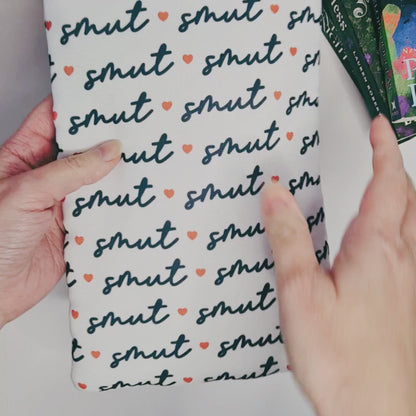 smut smut
smut smut
smut smut
smut smut
smut smut
smut smut
smut smut
smut smut
smut smut
smut smut
smut smut
smut smut